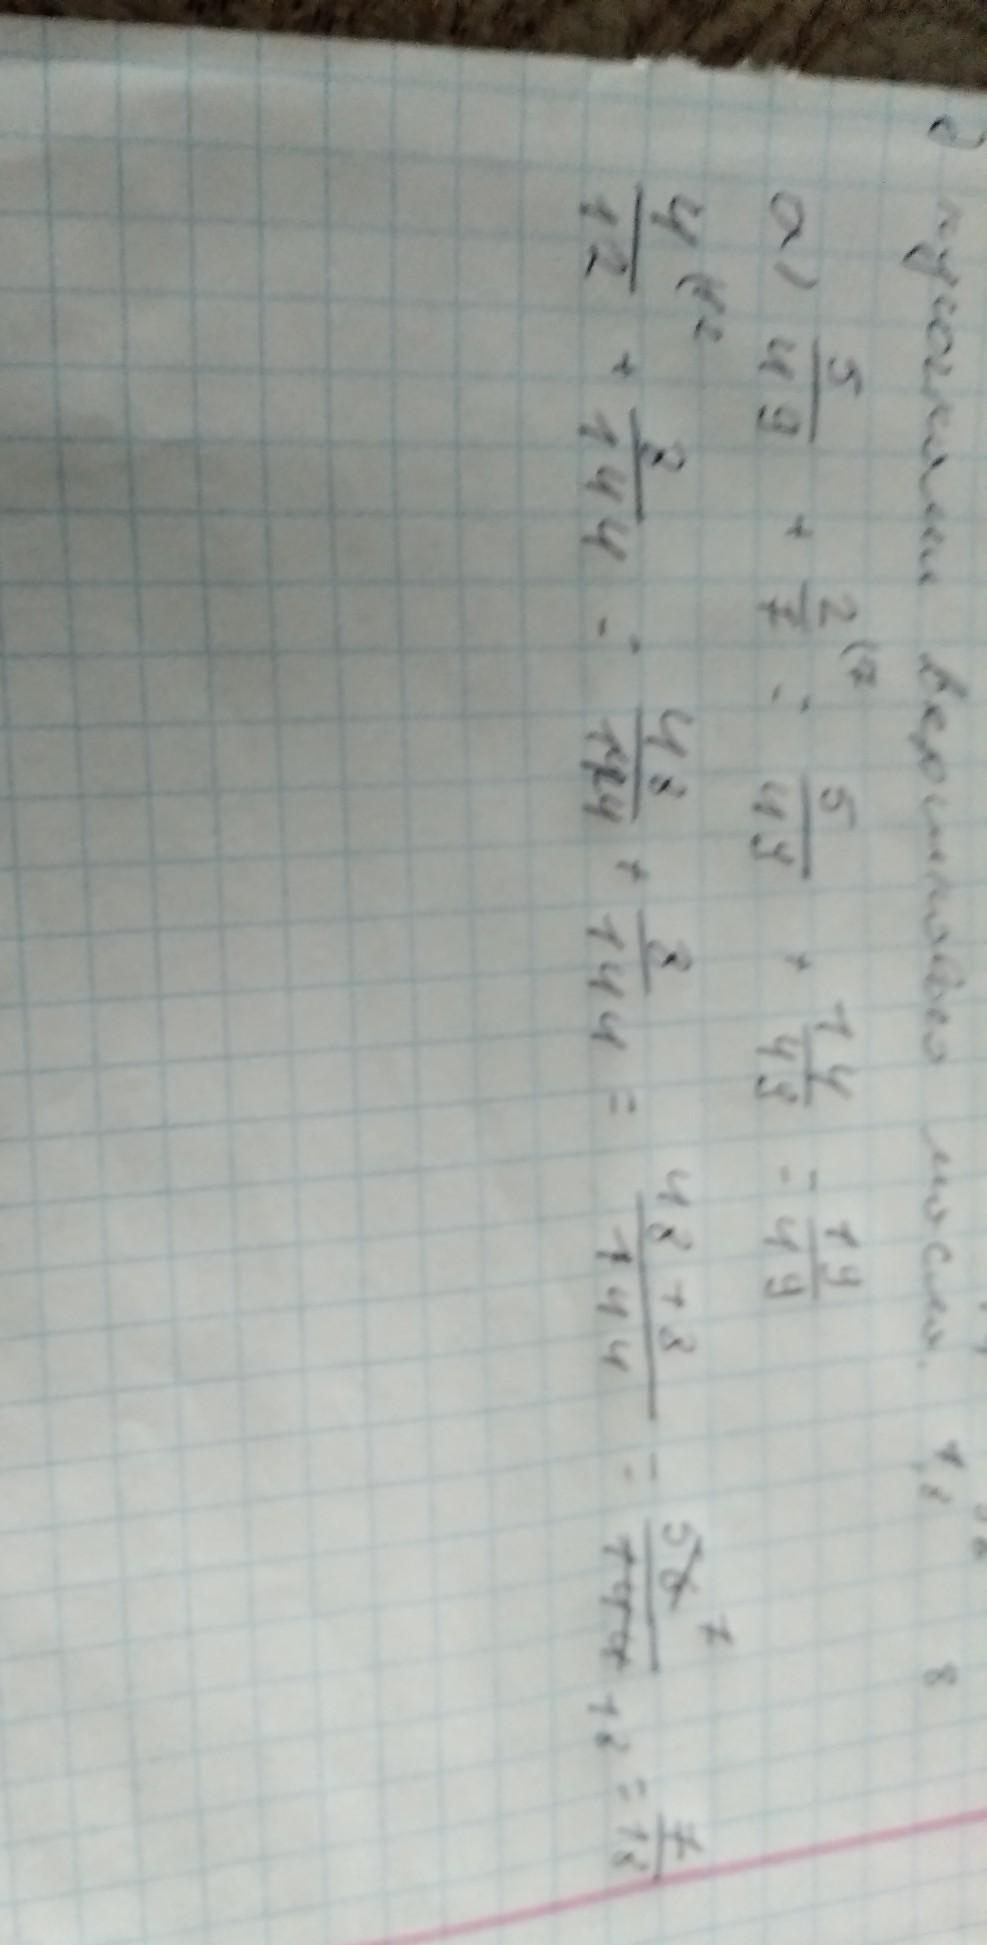 пуговками вершкового масла. 1,8 8
а) 5/49 + 2/7 (7 = 5/49 + 14/49 = 19/49
4/12 (12 + 8/144 = 48/144 + 8/144 = 48+8/144 = 56/144 7 18 = 7/18